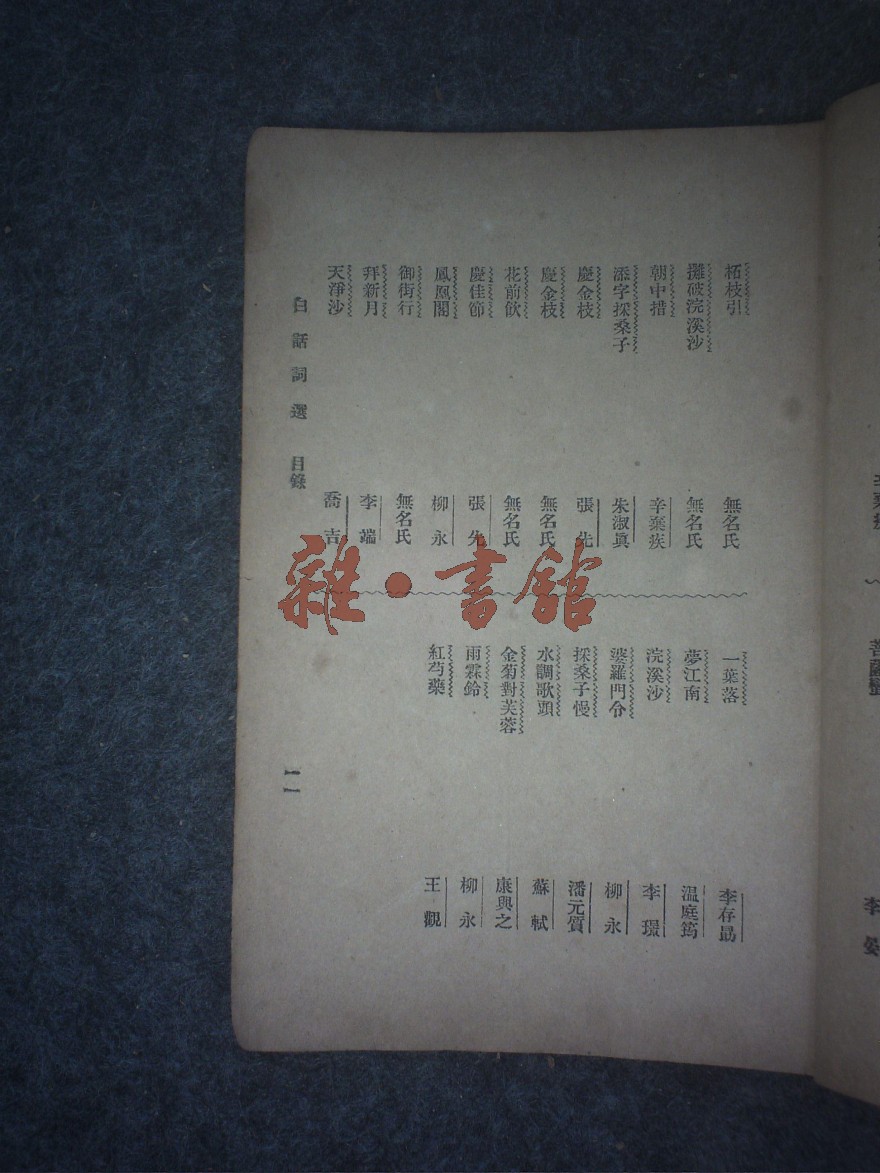 柘枝引　無名氏
攤破浣溪沙　無名氏
朝中措　辛棄疾
添字採桑子　朱淑眞
慶金枝　張先
慶金枝　無名氏
花前飲　無名氏
慶佳節　張先
鳳凰閣　柳永
御街行　無名氏
拜新月　李端
天淨沙　喬吉
一葉落　李存勗
夢江南　温庭筠
浣溪沙　李璟
婆羅門令　柳永
採桑子慢　潘元質
水調歌頭　蘇軾
金菊對芙蓉　康與之
雨霖鈴　柳永
紅芍藥　王觀
白話詞選　目錄
雜·書館
菩薩蠻